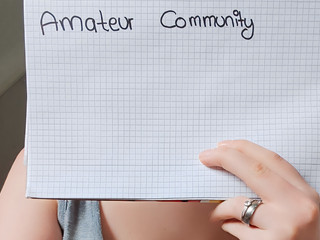 Amateur Community